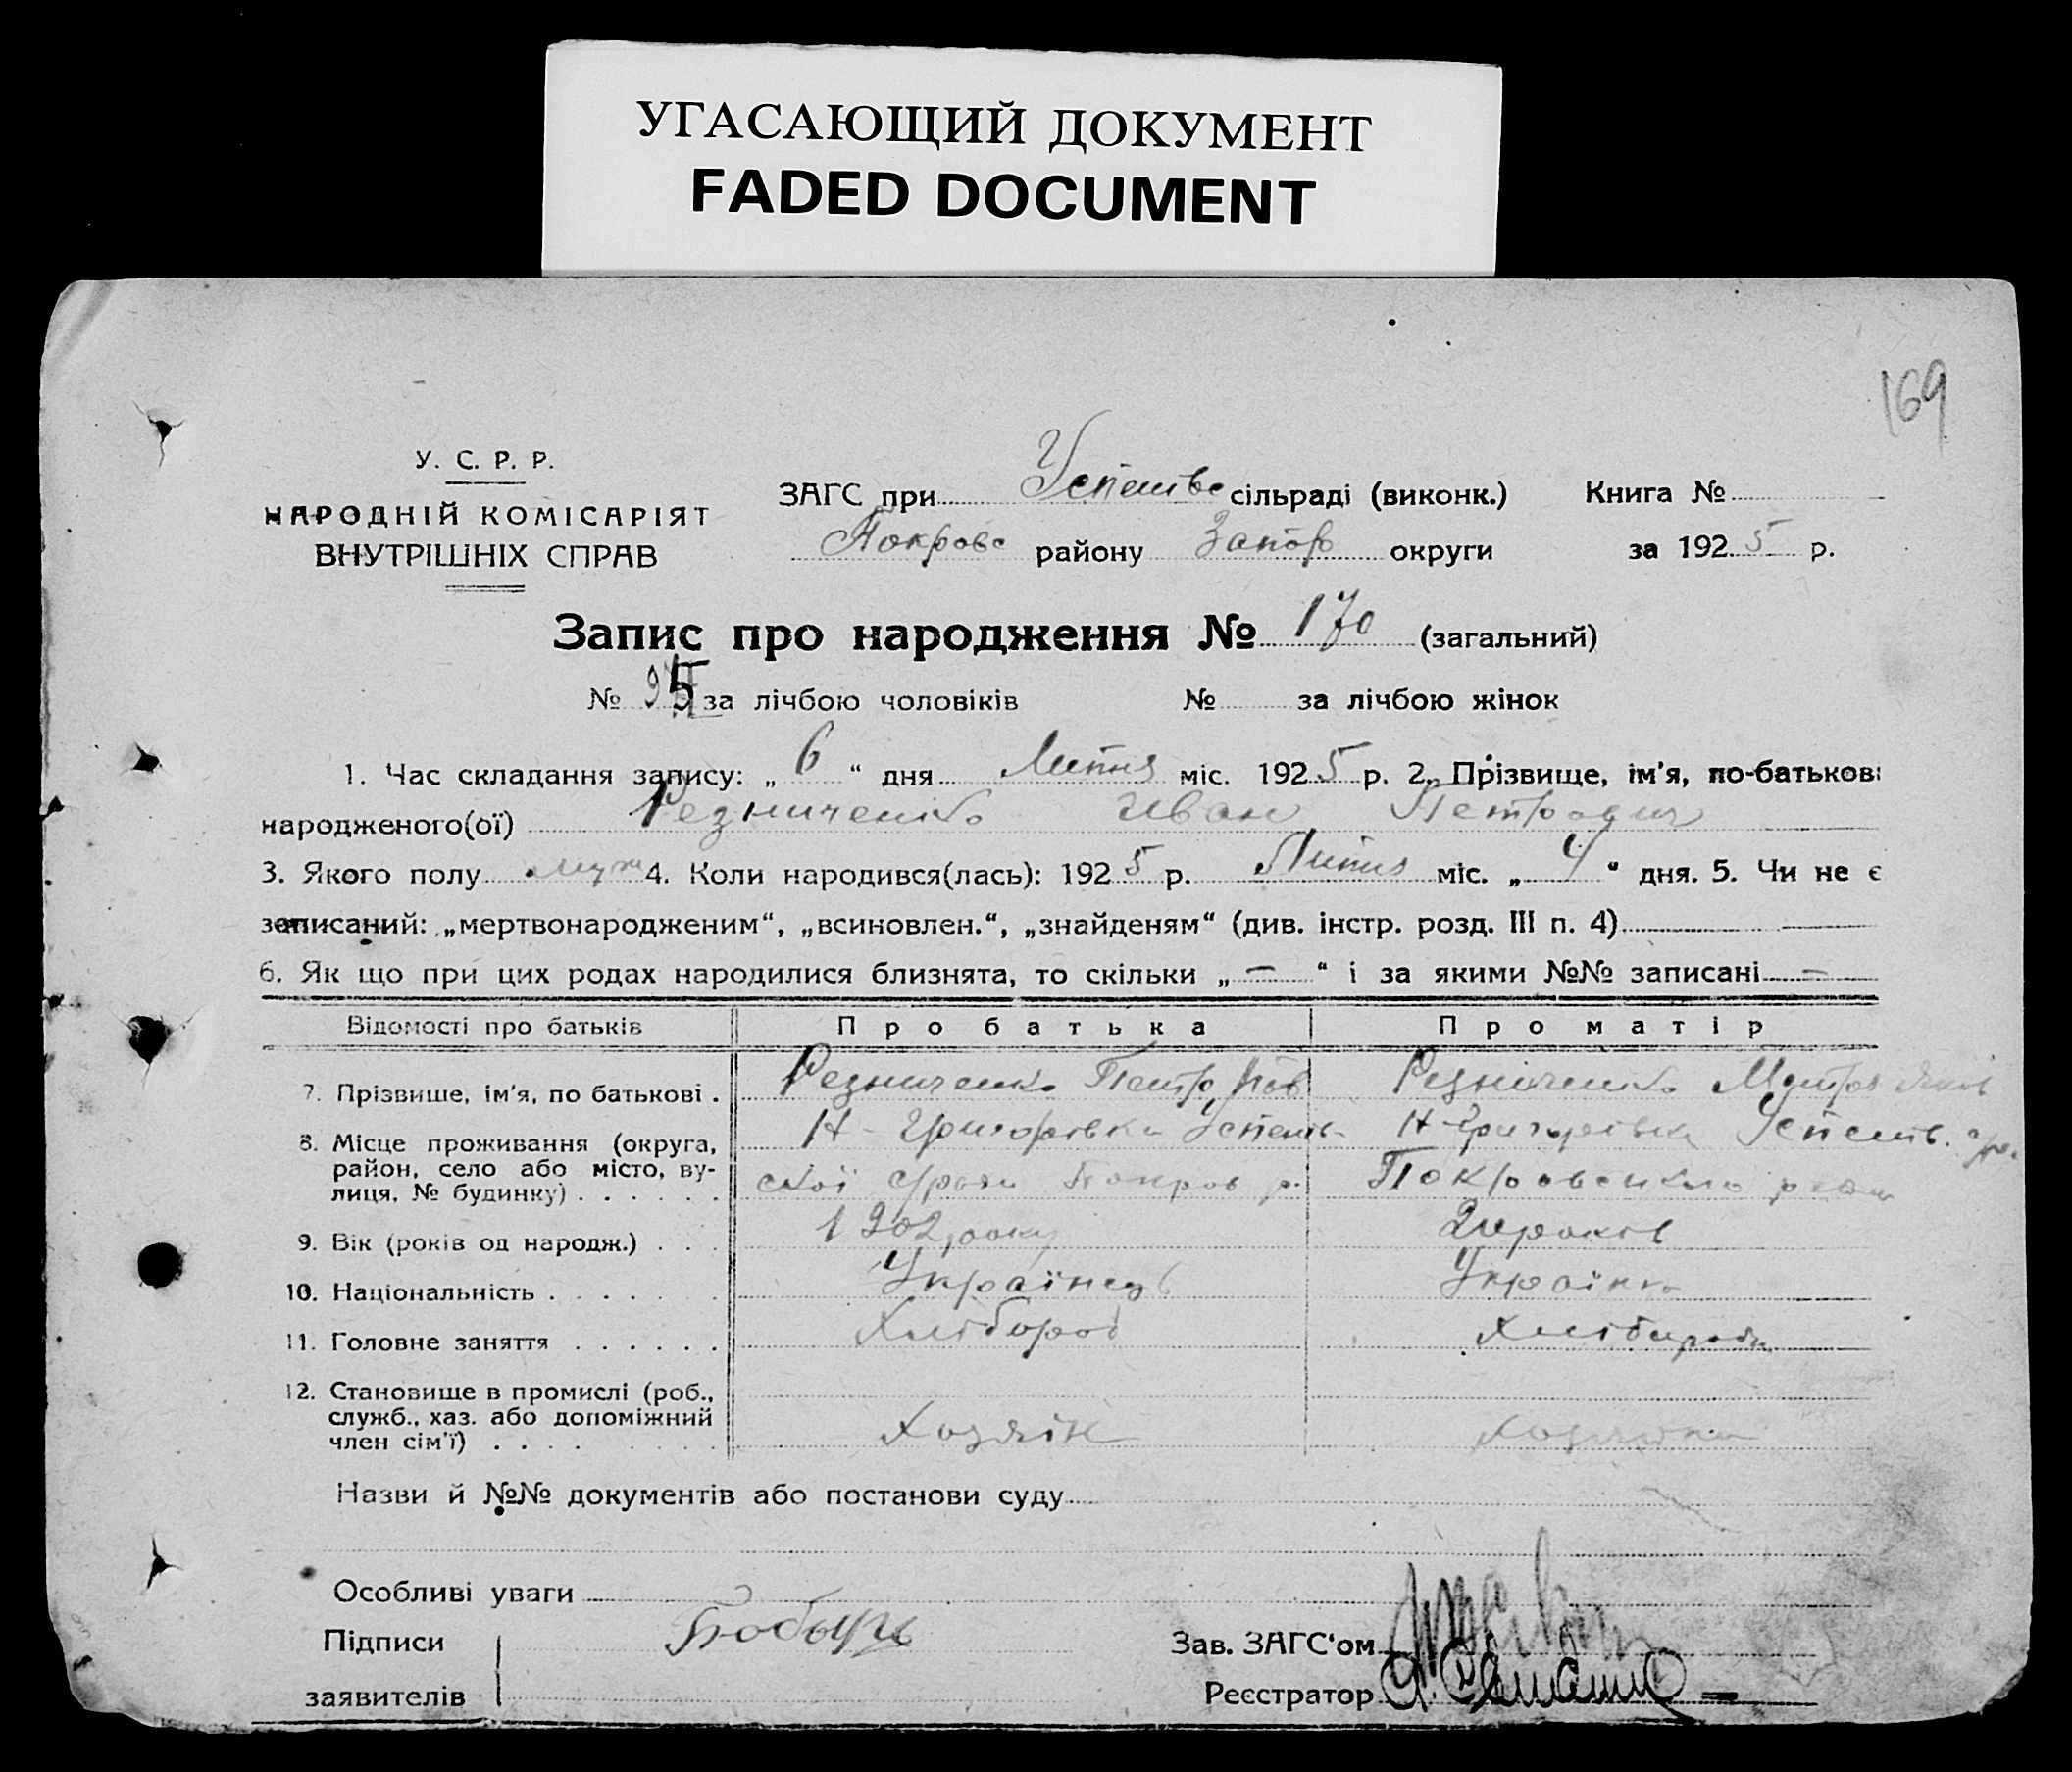 УГАСАЮЩИЙ ДОКУМЕНТ
FADED DOCUMENT
169
У. С. Р. Р.
НАРОДНІЙ КОМІСАРІЯТ
ВНУТРІШНІХ СПРАВ
ЗАГС при Успенівс сільраді (виконк.) Книга №
Покровс району Запор округи за 1925 р.
Запис про народження № 170 (загальний)
№ 95 за лічбою чоловіків № за лічбою жінок
1. Час складання запису: „ 6 “ дня Липня міс. 1925 р. 2. Прізвище, ім'я, по-батькові
народженого(ої) Резниченко Иван Петрович
3. Якого полу муж 4. Коли народився(лась): 1925 р. Липня міс. „ 4 “ дня. 5. Чи не є
записаний: „мертвонародженим“, „всиновлен.“, „знайденям“ (див. інстр. розд. III п. 4)
6. Як що при цих родах народилися близнята, то скільки „ — “ і за якими №№ записані —
Відомості про батьків Про батька Про матір
7. Прізвише, ім'я, по батькові . Резниченко Петро Резніченко Мотря Яков
8. Місце проживання (округа, Н-Григоровка Успенів- Н-Григорівка Успенів.
район, село або місто, ву- ської Покров р. Покровського
лиця, № будинку) . . . . . .
9. Вік (років од народж.) . . . 1902 року років
10. Національність . . . . . . Українець Українка
11. Головне заняття . . . . . . Хлібороб Хлібороб
12. Становище в промислі (роб.,
служб., хаз. або допоміжний
член сім'ї) . . . . Хозяїн Хозяйка
Назви й №№ документів або постанови суду
Особливі уваги
Підписи
заявителів
Зав. ЗАГС‘ом
Реєстратор